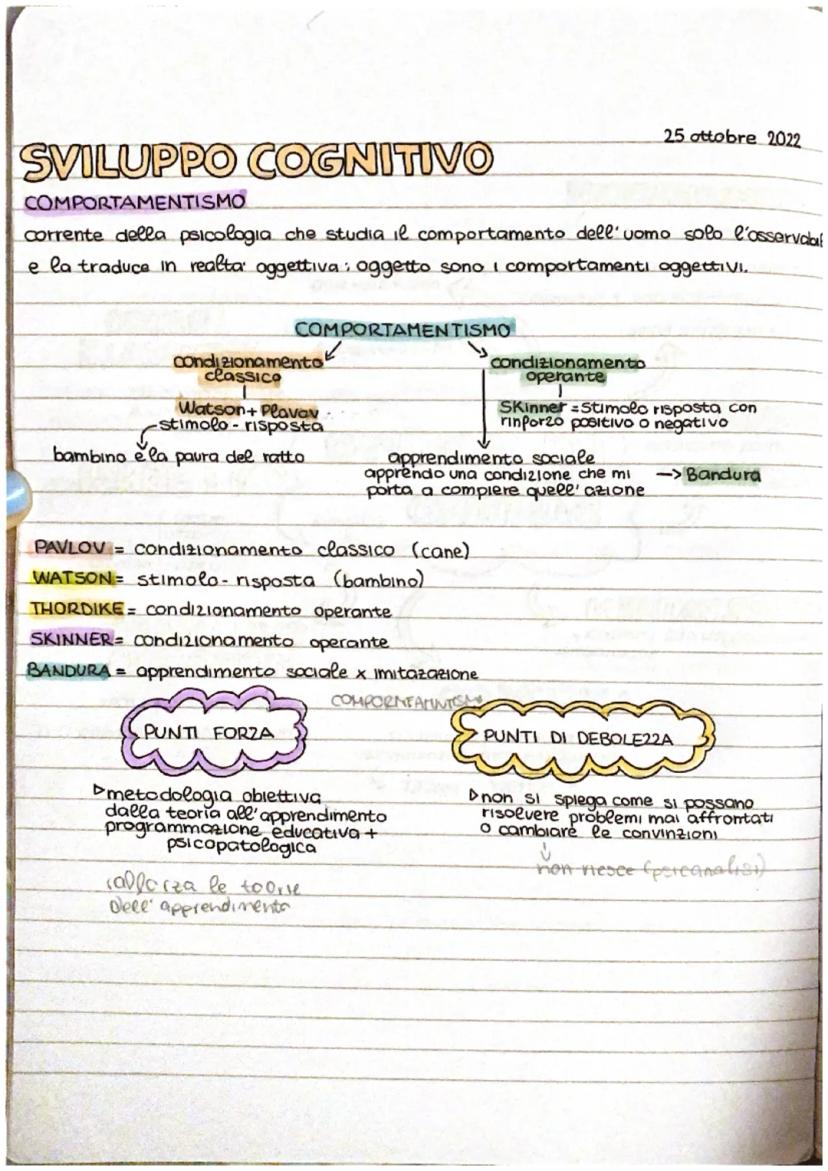 25 ottobre 2022
SVILUPPO COGNITIVO
COMPORTAMENTISMO
corrente della psicologia che studia il comportamento dell'uomo solo l'osservabil
e la traduce in realta' oggettiva: oggetto sono i comportamenti oggettivi.
COMPORTAMENTISMO
condizionamento classico
condizionamento operante
Watson + Plavov
stimolo - risposta
Skinner = Stimolo risposta con
rinforzo positivo o negativo
bambino e la paura del ratto
apprendimento sociale
apprendo una condizione che mi
porta a compiere quell'azione
→ Bandura
PAVLOV = condizionamento classico (cane)
WATSON = stimolo - risposta (bambino)
THORDIKE = condizionamento operante
SKINNER = condizionamento operante
BANDURA = apprendimento sociale x imitazazione
PUNTI FORZA
PUNTI DI DEBOLEZZA
metodologia obiettiva
dalla teoria all'apprendimento
programmazione educativa +
psicopatologica
non si spiega come si possano
risolvere problemi mai affrontati
o cambiare le convinzioni
non riesce (psicanalisi)
rafforza le teorie
dell'apprendimento